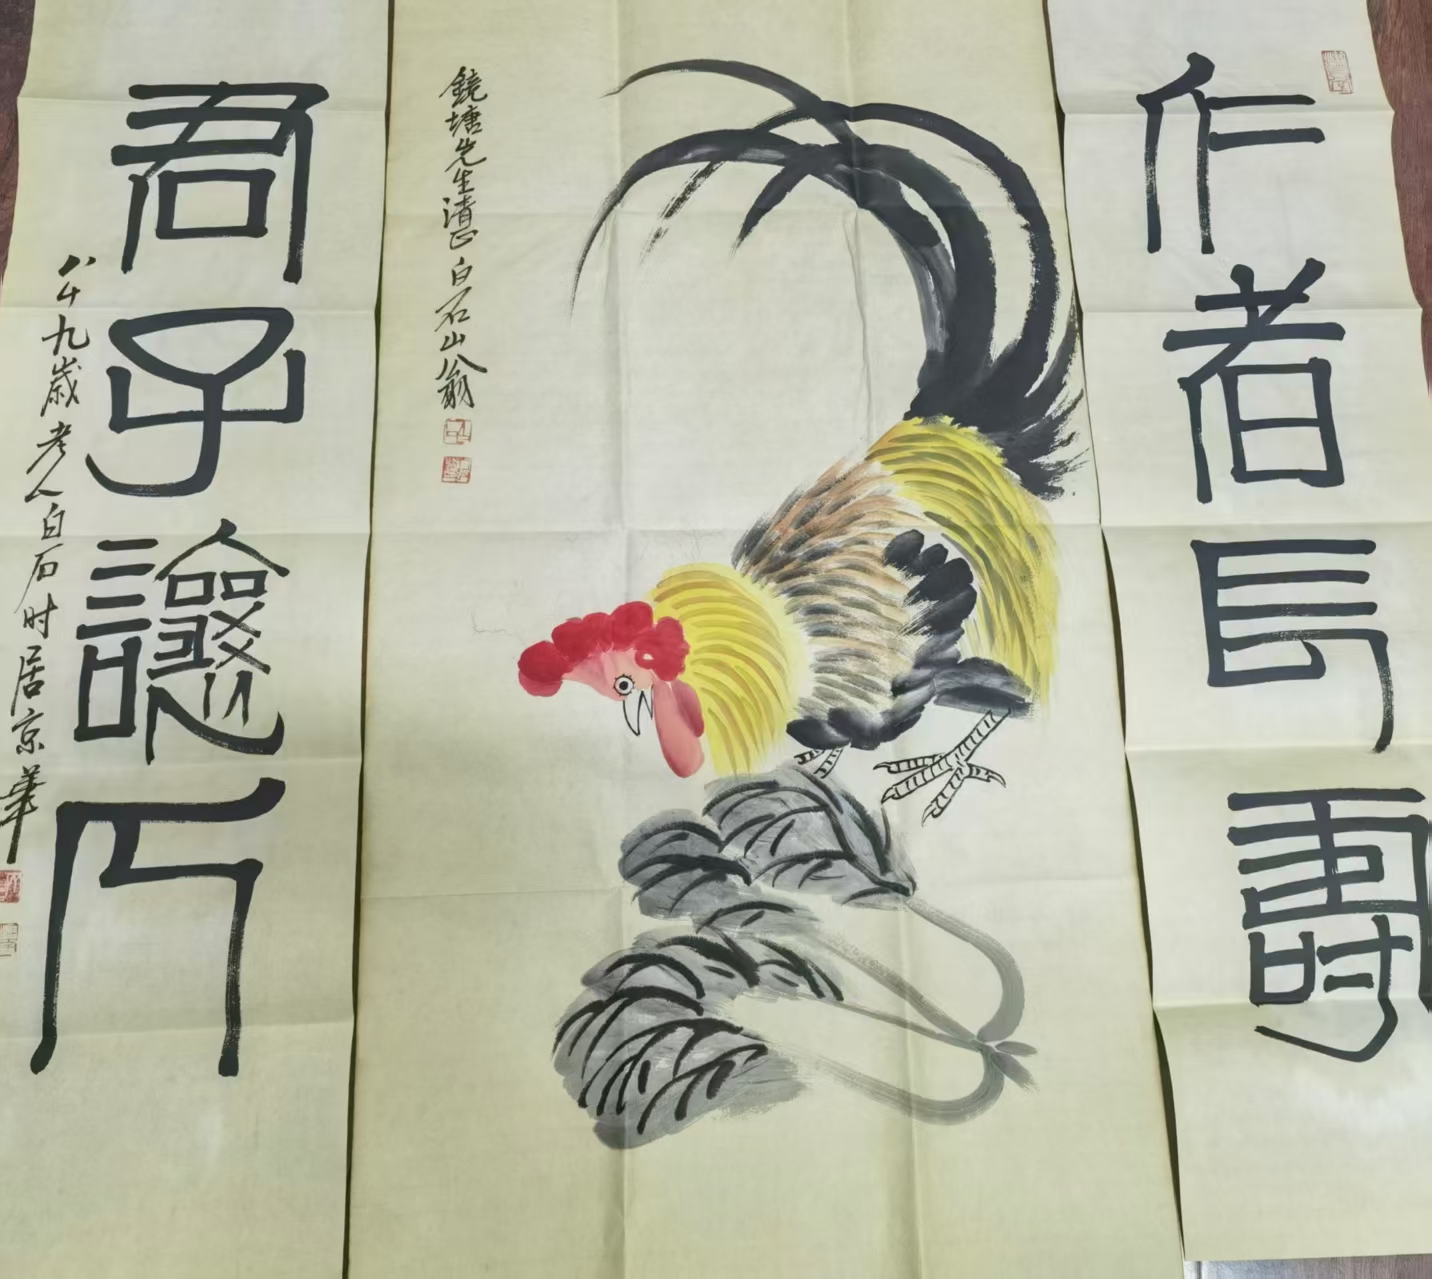 仁者長壽
鏡塘先生清正白石山翁
君子讓人
八十九歲老人白石时居京華